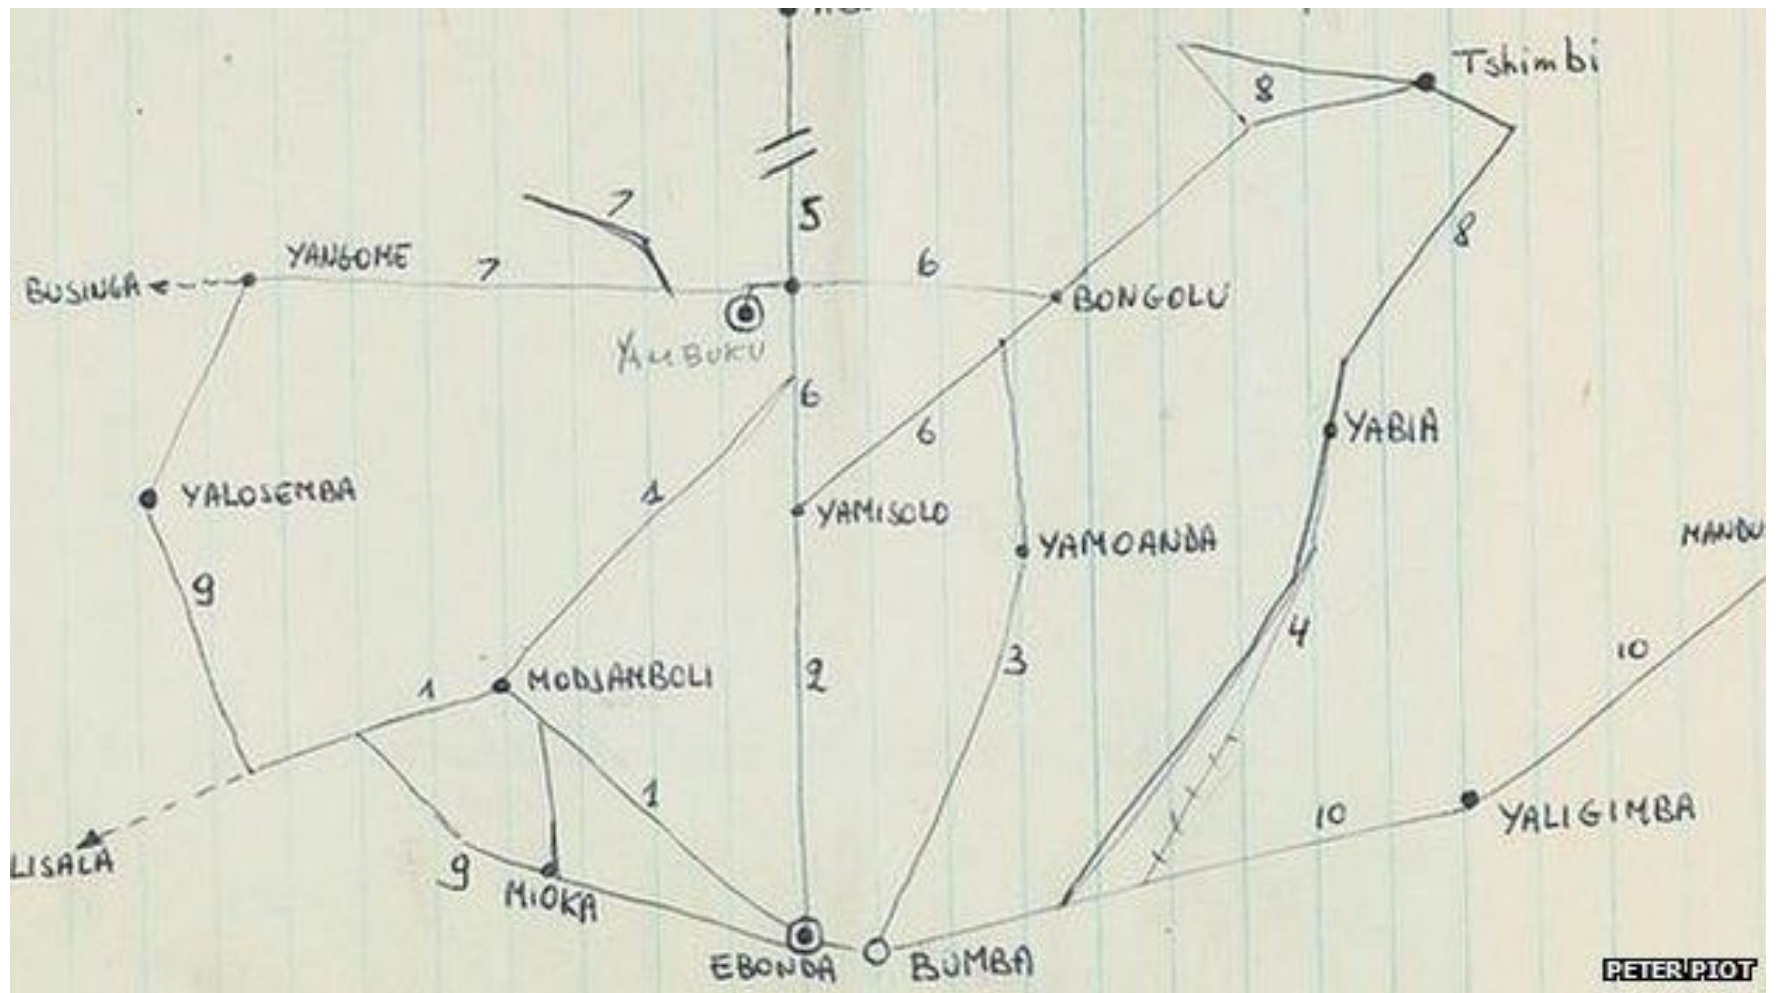 Tshimbi
8
7
5
8
YANGOME
6
BUSINGA
7
BONGOLU
YAMBUKU
6
6
YABIA
1
YALOSEMBA
YAMISOLO
YAMOANDA
MANDU
9
4
10
3
2
MODJAMBOLI
1
1
10
YALIGIMBA
LISALA
9
MIOKA
EBONDA
BUMBA
PETER PIOT